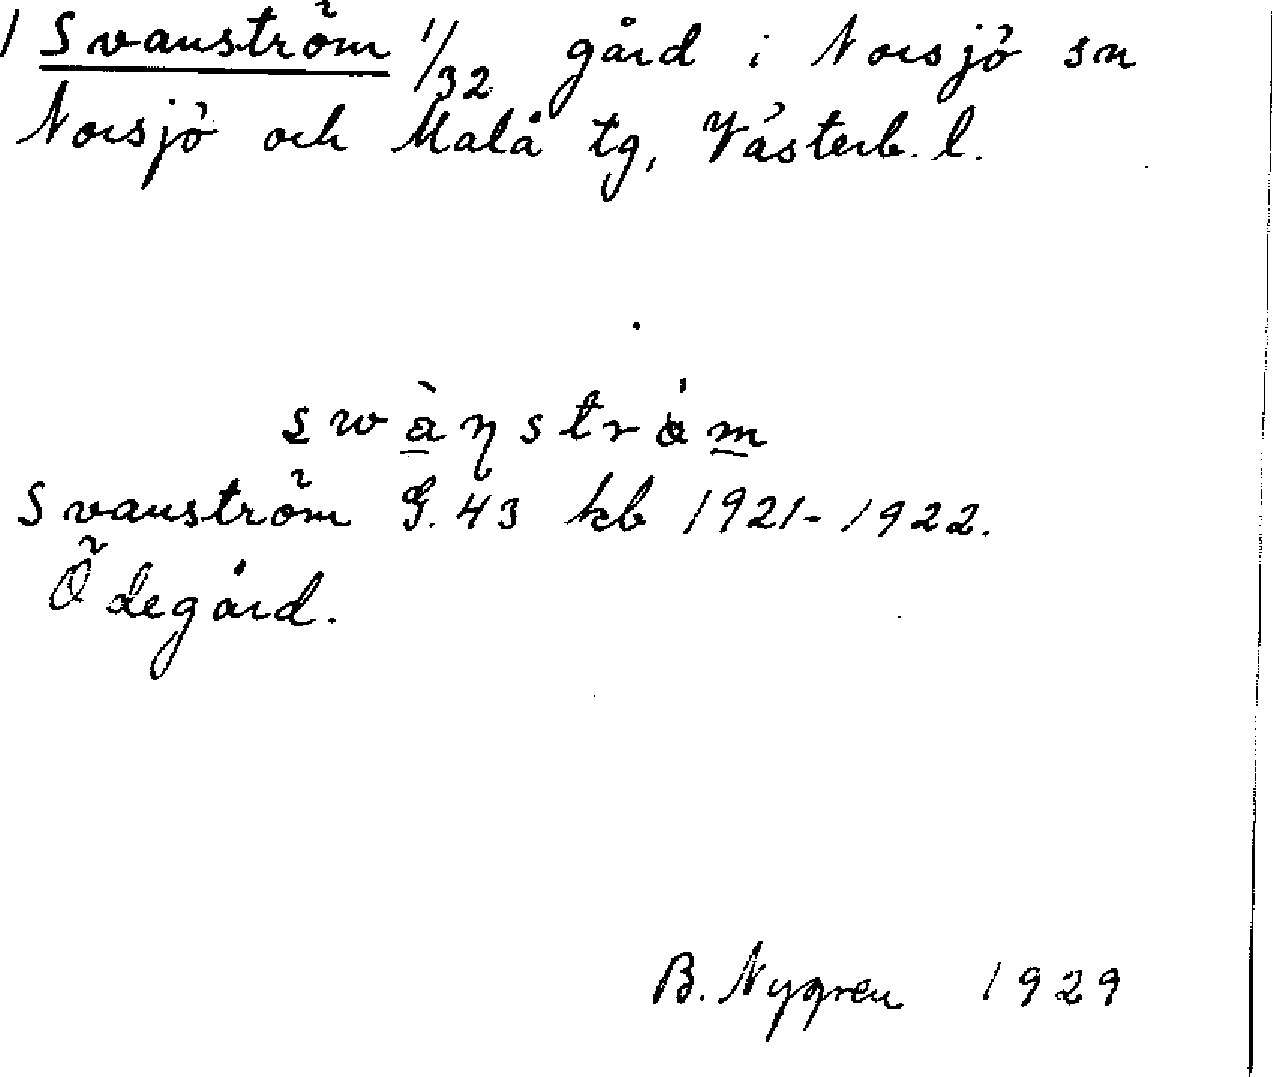 1 Svanström 1/32 gård i Norsjö sn
Norsjö och Malå tg, Västerb. l.
swàŋström
Svanström G. 43 kb 1921-1922.
Ödegård.
B. Nygren 1929